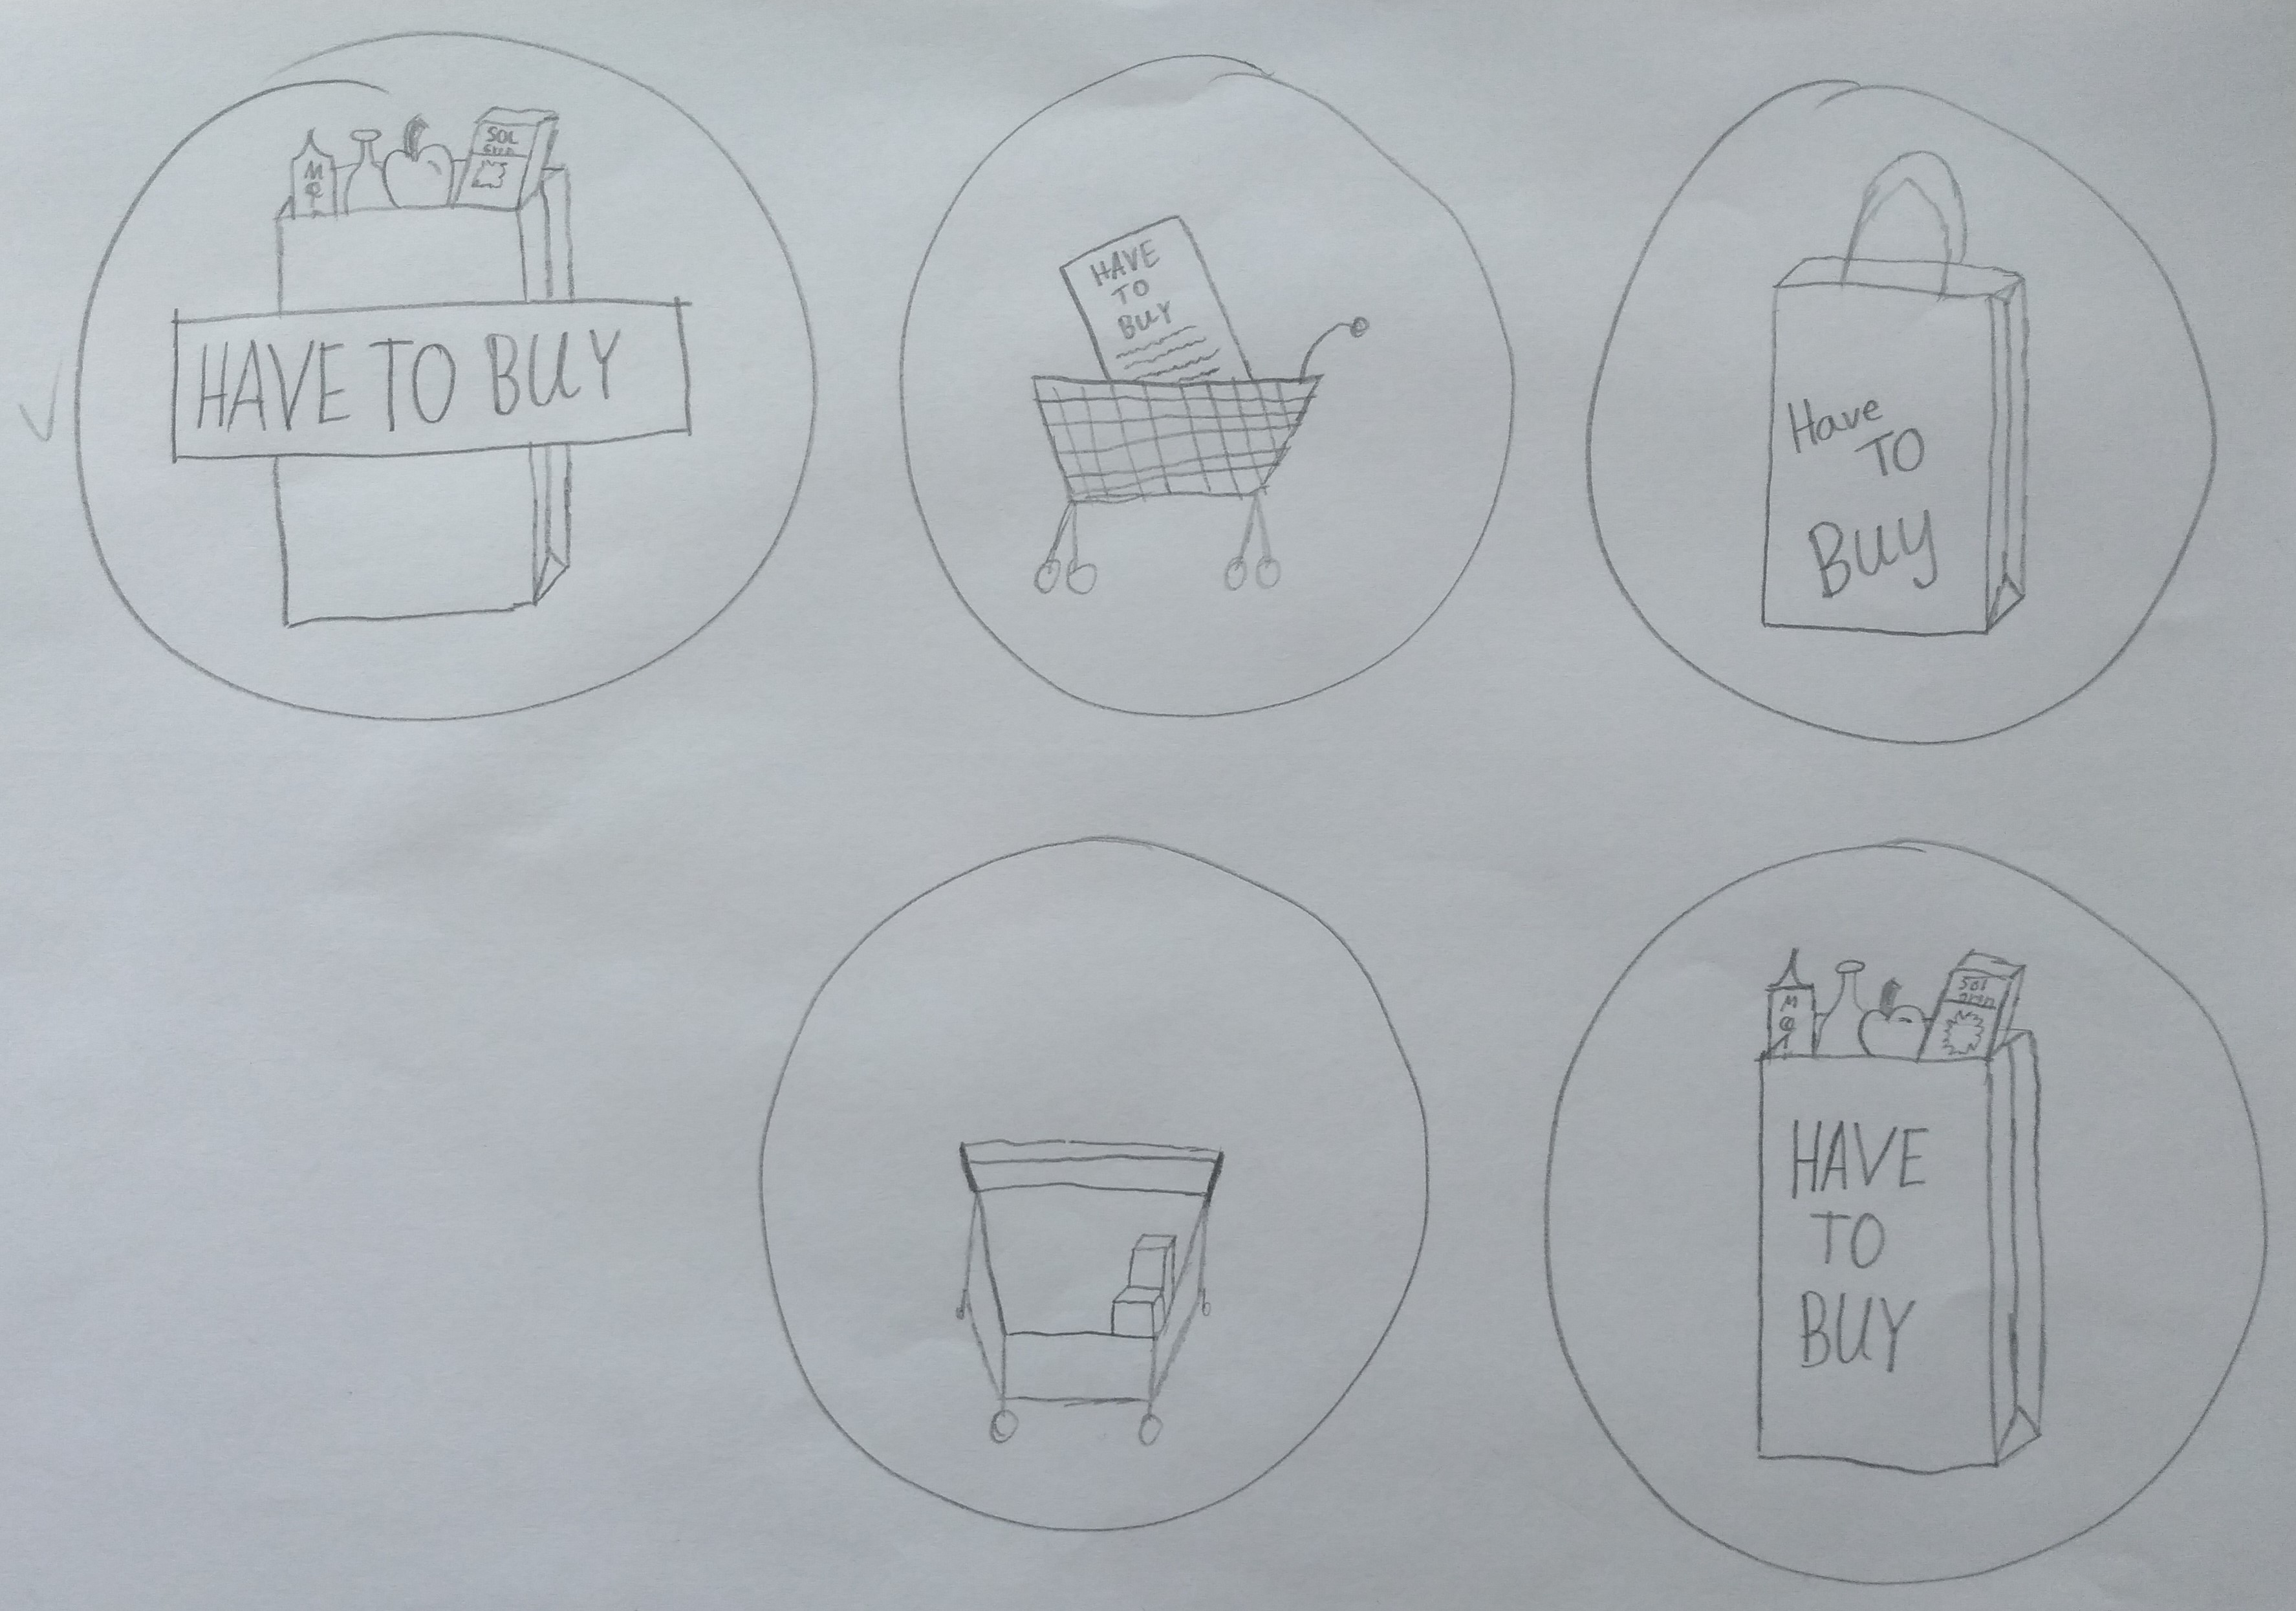 SOL
HAVE TO BUY
HAVE
TO
BUY
Have
TO
BUY
SOL
HAVE
TO
BUY